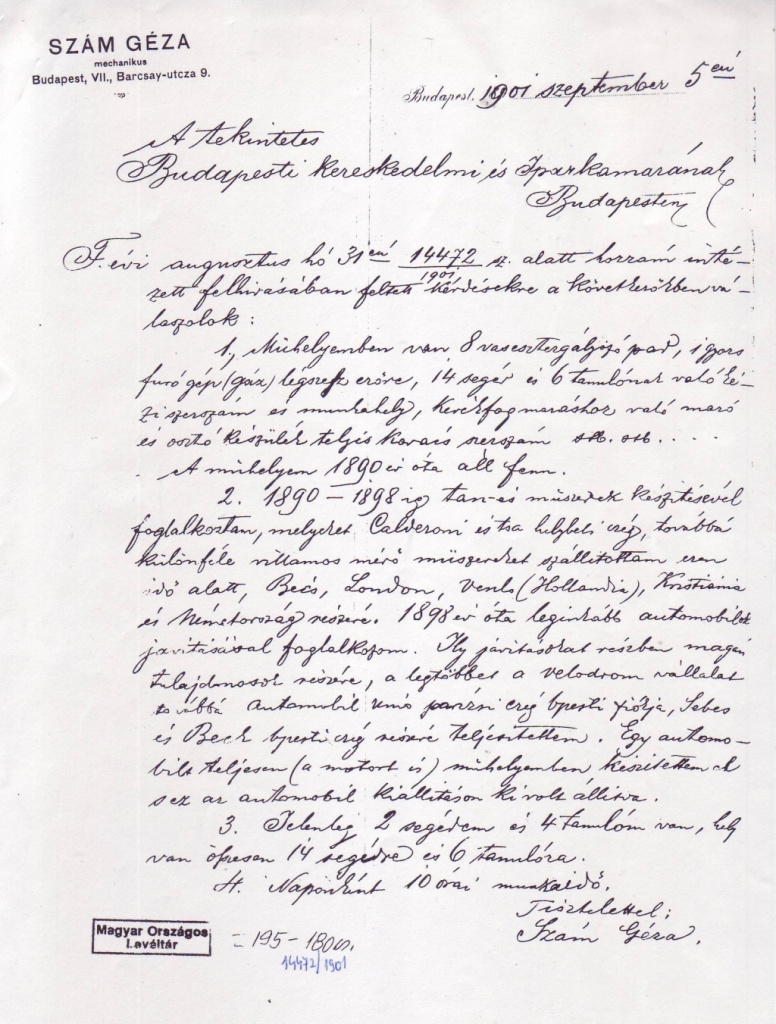 SZÁM GÉZA
mechanikus
Budapest, VII., Barcsay-utcza 9.
Budapest. 1901 szeptember 5én
A tekintetes
Budapesti kereskedelmi és Iparkamarának
Budapesten
F. évi augusztus hó 31én 14472/1901 sz. alatt hozzám inté-
zett felhivásában feltett kérdésekre a következőkben vá-
laszolok:
1., Műhelyemben van 8 vasesztergályozó pad, 1 gyors
furó gép (gáz) légszesz erőre, 14 segéd és 6 tanulónak való ké-
zi szerszám és munkahely, kerékfogmaráshoz való maró
és osztó készülék teljes kovács szerszám stb. stb. . . . .
A műhelyem 1890 év óta áll fenn.
2. 1890 – 1898 ig tan-és műszerek készitésével
foglalkoztam, melyeket Calderoni és tsa helybeli czég, továbbá
különféle villamos mérő műszereket szállitottam ezen
idő alatt, Bécs, London, Venlo (Hollandia), Kristiánia
és Németország részére. 1898 év óta leginkább automobilok
javitásával foglalkozom. Ily javitásokat részben magán
tulajdonosok részére, a legtöbbet a velodrom vállalat
továbbá Automobil Unió párizsi czég bpesti fiókja, Sebes
és Beck bpesti czég részére teljesitettem. Egy automo-
bilt teljesen (a motort is) műhelyemben készitettem el
s ez az automobil kiállitáson ki volt állitva.
3. Jelenleg 2 segédem és 4 tanulóm van, hely
van összesen 14 segédre és 6 tanulóra.
4. Naponként 10 órai munkaidő.
Tisztelettel:
Szám Géza.
Magyar Országos
Levéltár
195–180
14472/1901